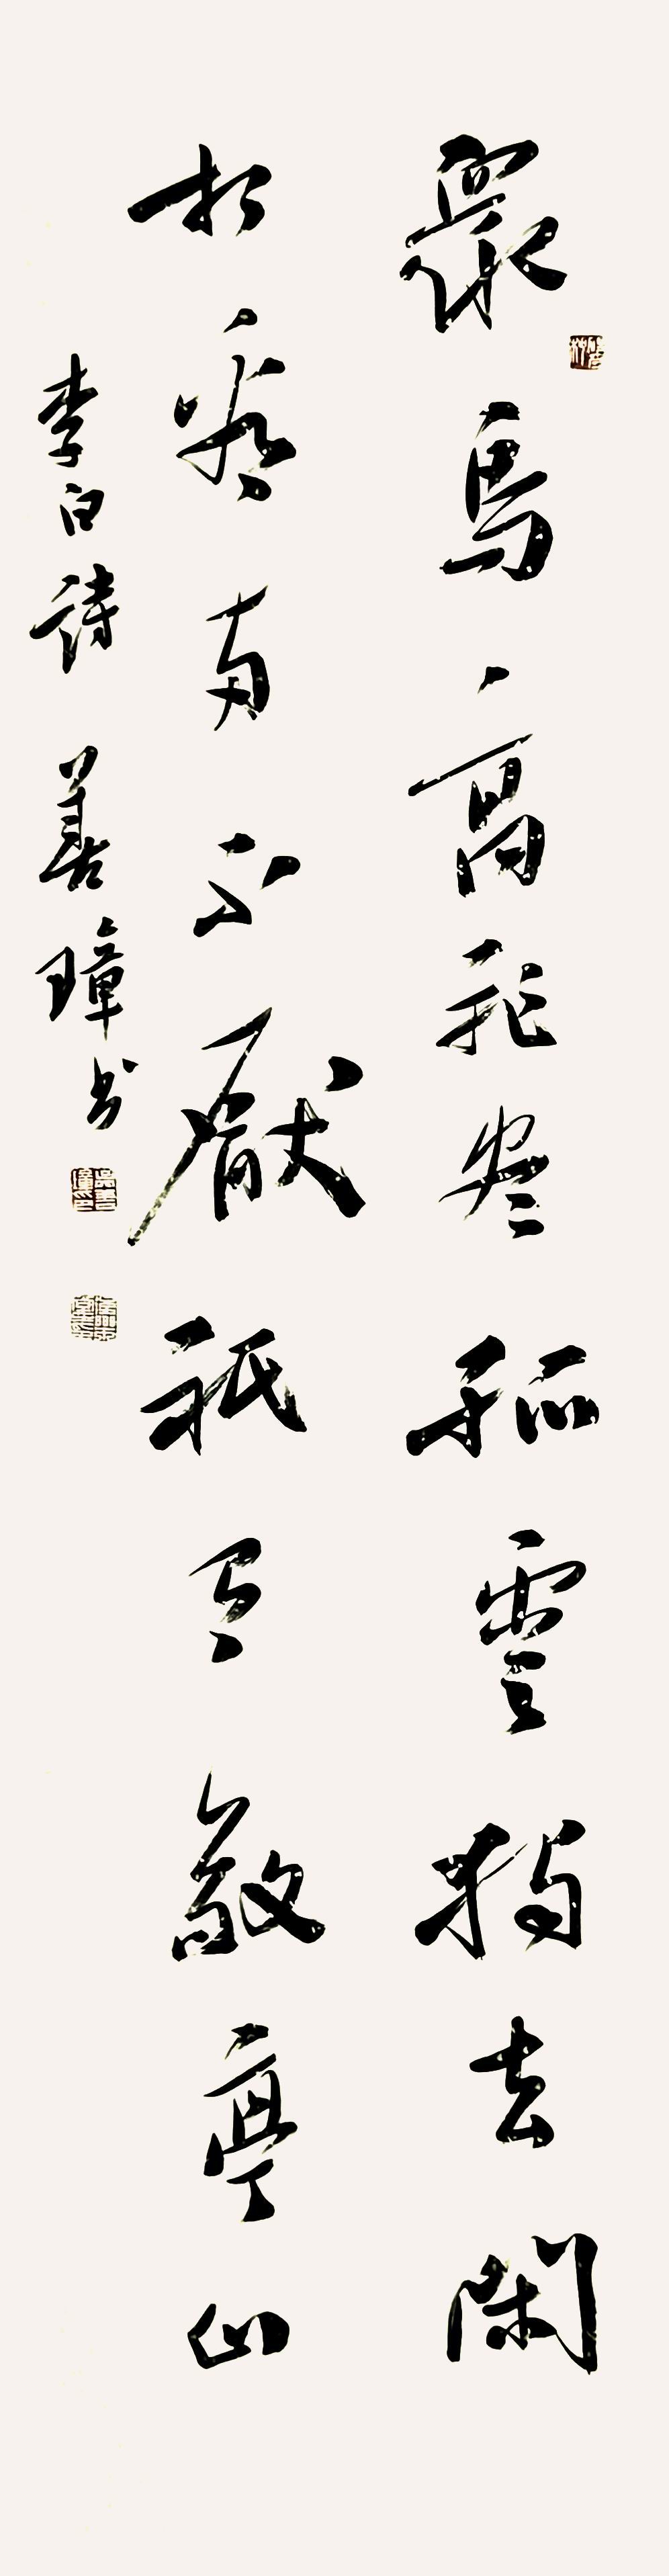 眾鳥高飛盡孤雲獨去閑
相看兩不厭祇有敬亭山
李白詩 善璋书